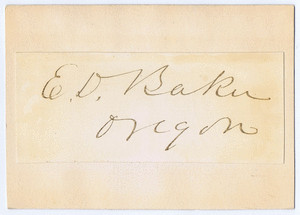 E. D. Baker
Oregon